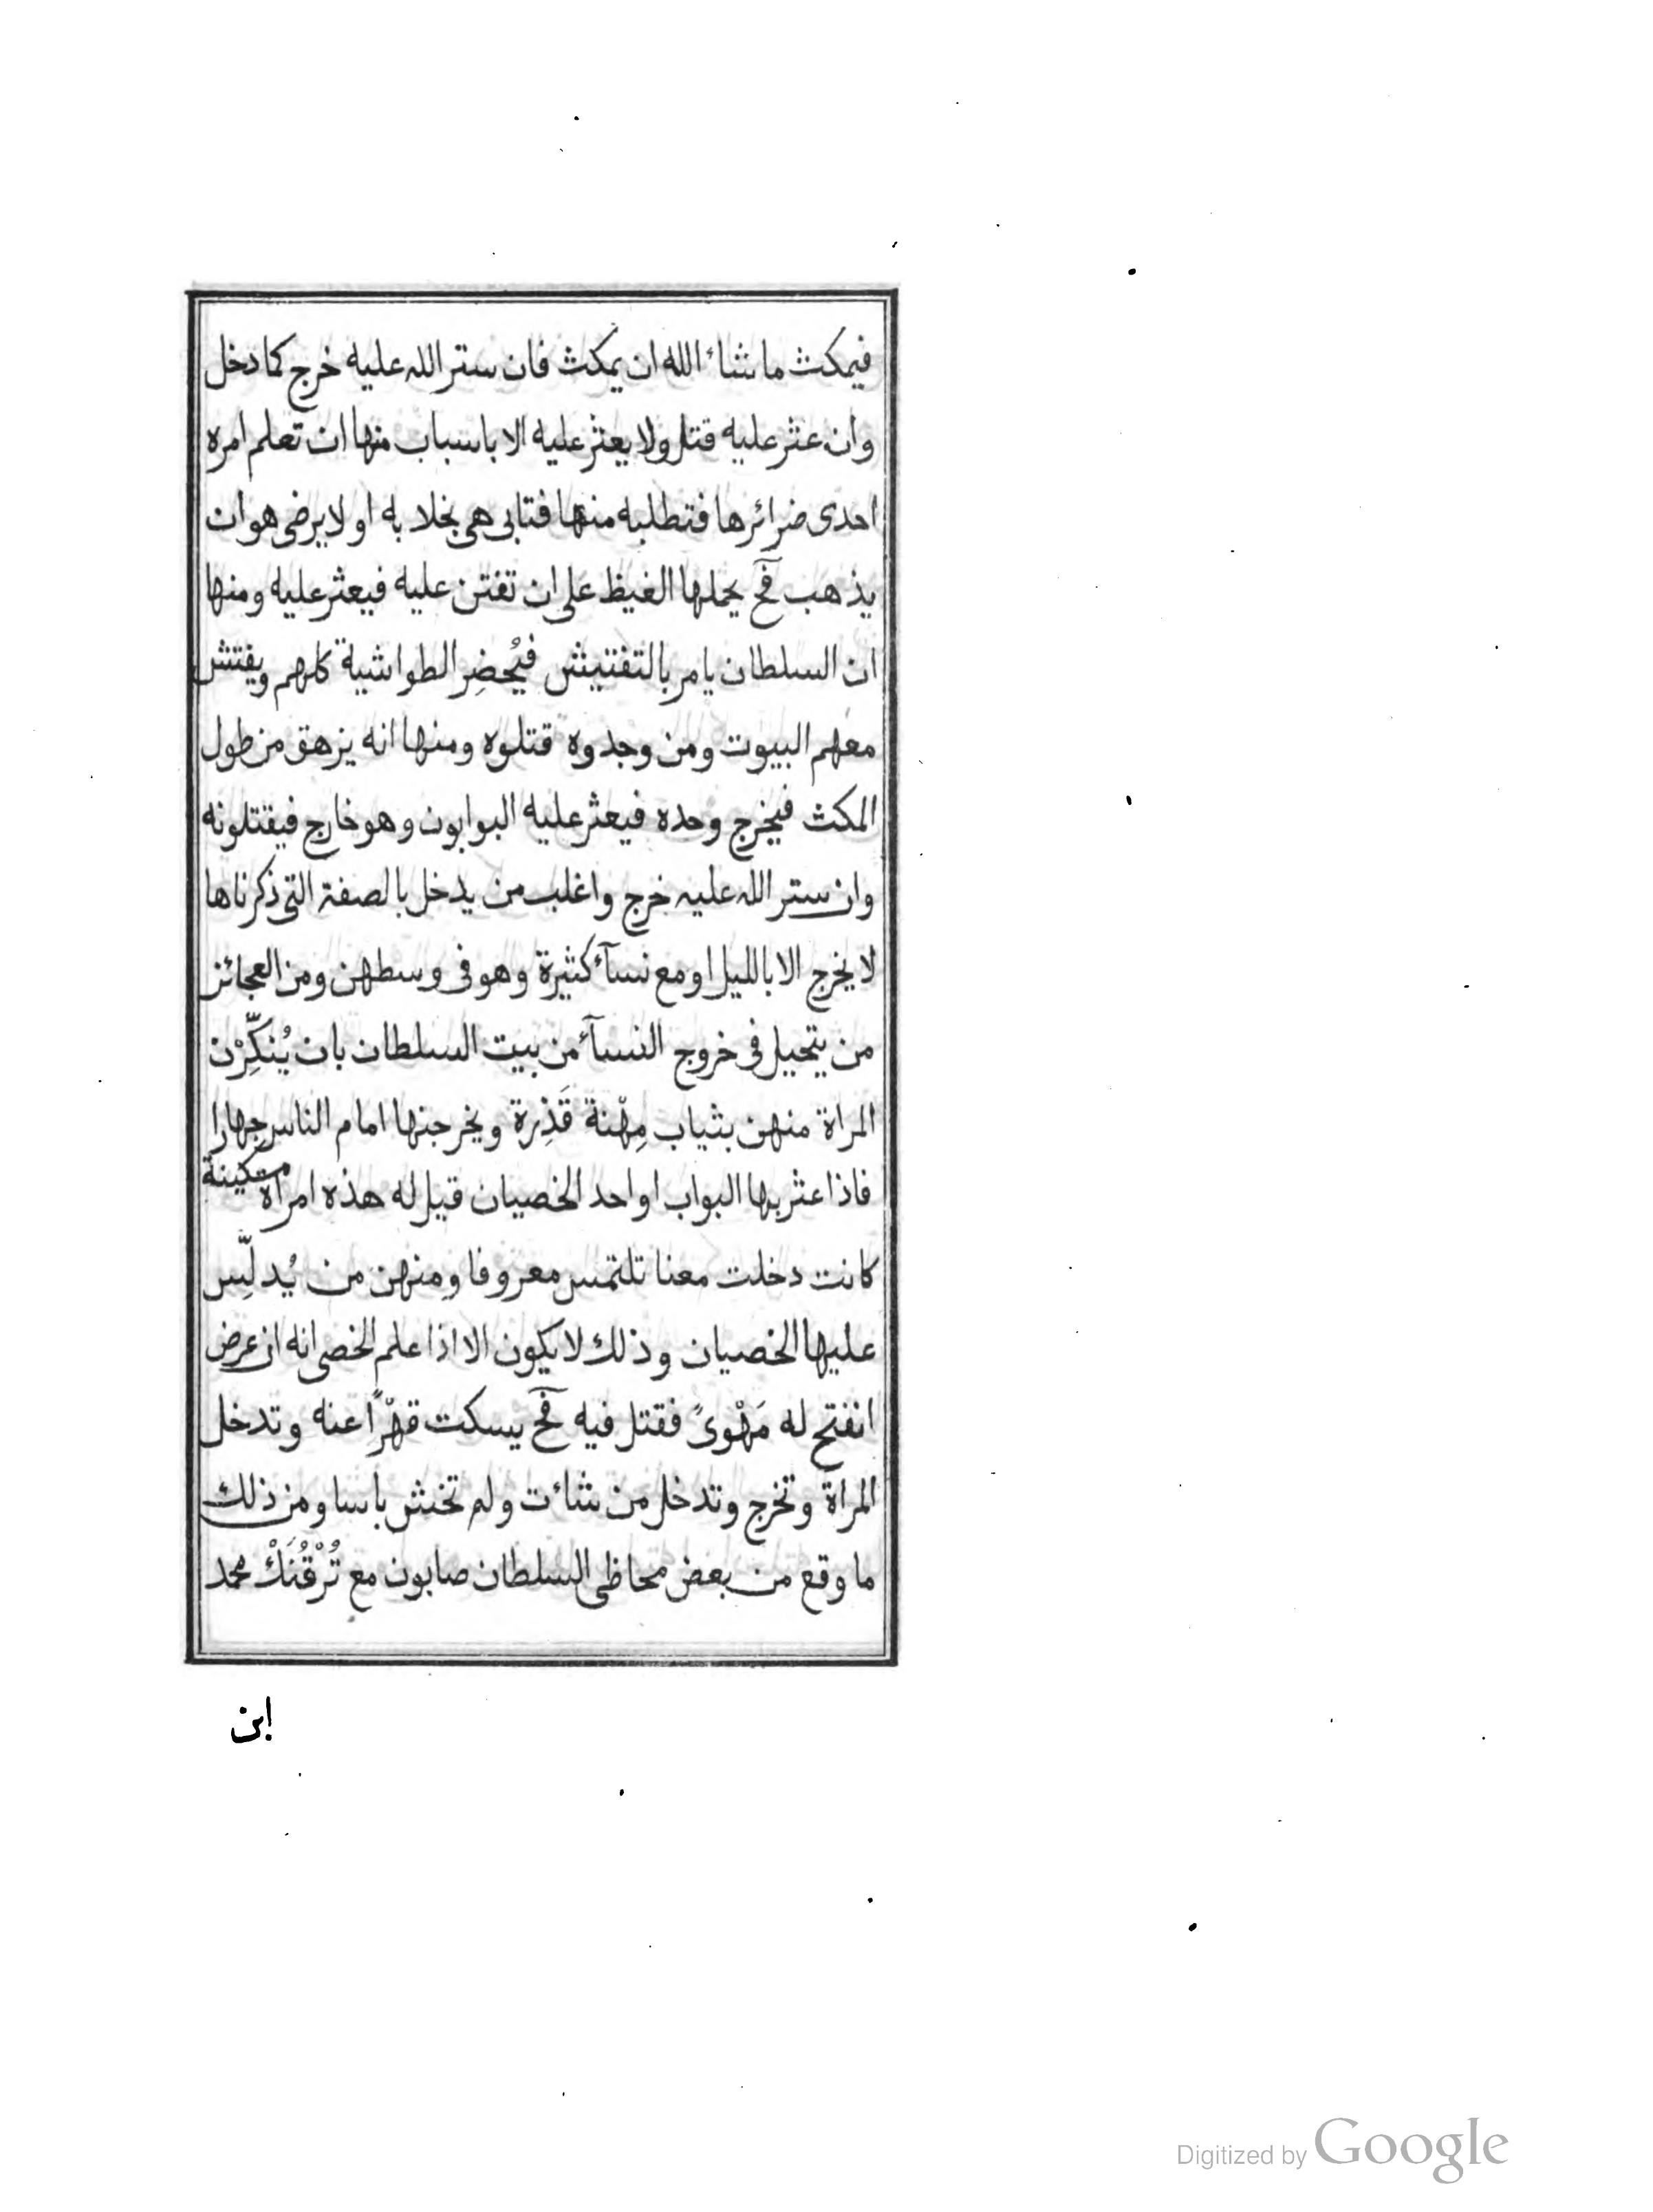 فيمكث ما شاء الله ان يمكث فان ستر الله عليه خرج كما دخل
وان عثر عليه قتل ولا يعثر عليه الا باسباب منها ان تعلم امره
احدى ضرائرها فتطلبه منها فتابى هى بخلا به او لا يرضى هو ان
يذهب فح يحملها الغيظ على ان تفتن عليه فيعثر عليه ومنها
ان السلطان يامر بالتفتيش فيُحضِر الطواشية كلهم ويفتش
معهم البيوت ومن وجدوه قتلوه ومنها انه يزهق من طول
المكث فيخرج وحده فيعثر عليه البوابون وهو خارج فيقتلونه
وان ستر الله عليه خرج واغلب من يدخل بالصفة التى ذكرناها
لا يخرج الا بالليل او مع نسآء كثيرة وهو فى وسطهن ومن العجائز
من يتحيل فى خروج النسآء من بيت السلطان بان يُنكِّرْن
المراة منهن بثياب مِهْنة قَذِرة ويخرجنها امام الناس جهارا
فاذا عثر بها البواب او احد الخصيان قيل له هذه امراة مسكينة
كانت دخلت معنا تلتمس معروفا ومنهن من يُدلِّس
عليها الخصيان وذلك لا يكون الا اذا علم الخصى انه ان عرض
انفتح له مَهْوىً فقتل فيه فح يسكت قهْرًا عنه وتدخل
المراة وتخرج وتدخل من شاءت ولم تخش باسا ومن ذلك
ما وقع من بعض محاظى السلطان صابون مع تُرْقُنَكْ محمد
ابن
Digitized by Google